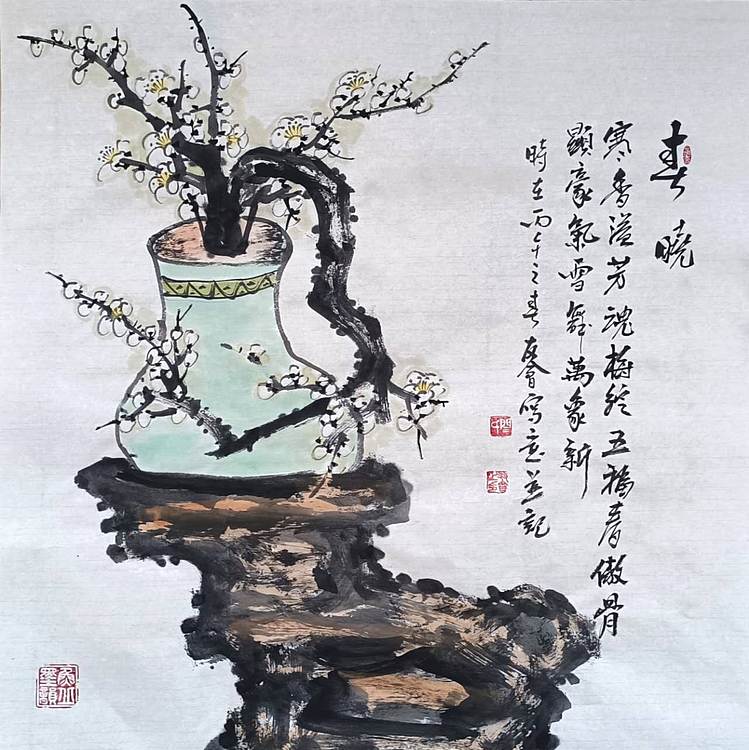 春曉
寒香溢芳魂梅五福春傲骨
顯豪氣雪舞萬象新
時在丙午之春寫意並記